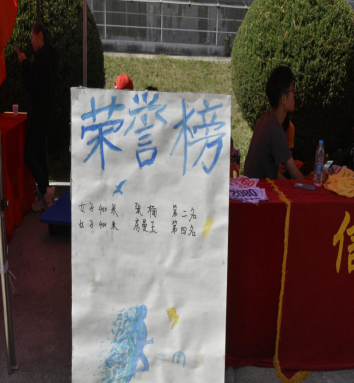 荣誉榜
女子400米 张楠 第二名
女子400米 高曼玉 第四名
信